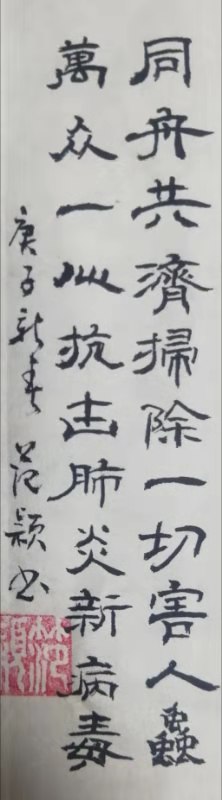 同舟共濟掃除一切害人蟲
萬众一心抗击肺炎新病毒
庚子新春 范颖书
范穎